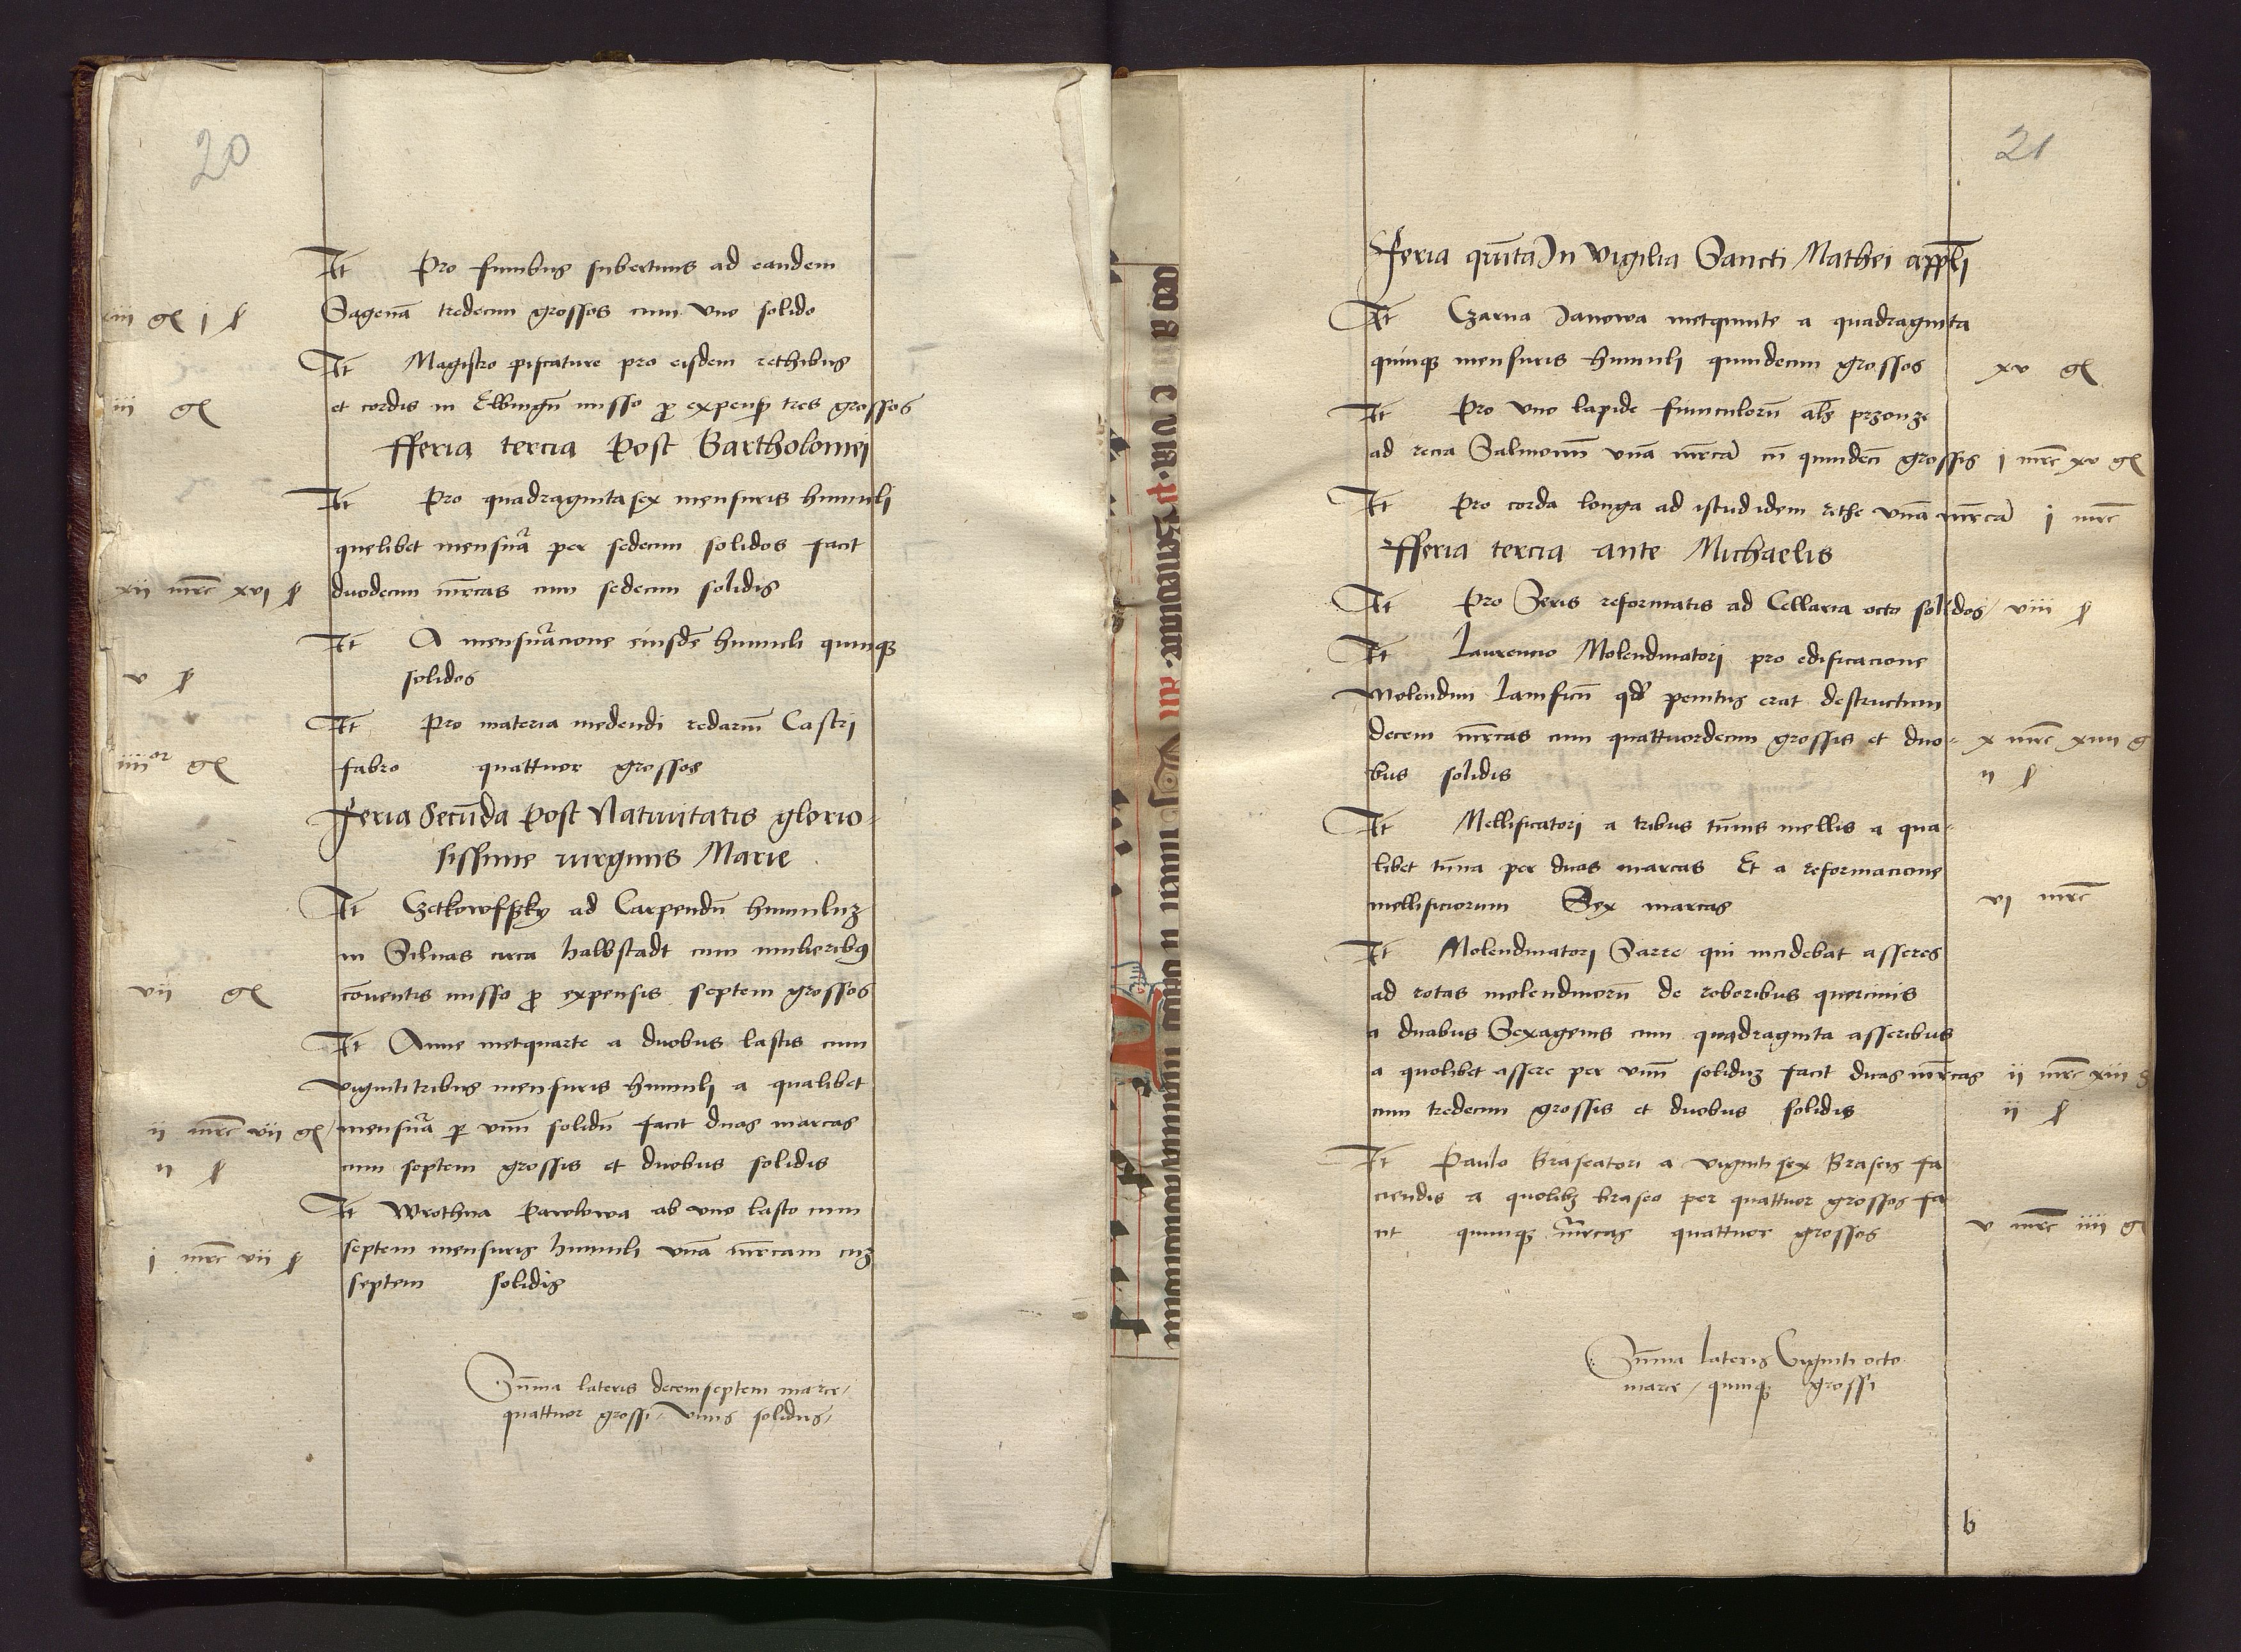 20
It Pro funibus subertinis ad eandem
xiii gł j ſ
Sagenā tredecim grossos cum vno solido
It Magistro piscature pro eisdem rethibus
iii gł
et cordis in Elbingn̄ misso ꝓ expen̄ tres grossos
fferia tercia Post Bartholomei
It Pro quadragintasex mensuris humuli
quelibet mensura per sedecim solidos facit
xii mrc xvj ſ
duodecim mrcas cum sedecim solidis
It A mensuracione eiusdē humuli quinqꝫ
v ſ
solidos
It Pro materia medendi redarum Castri
iiii or gł
fabro quattuor grossos
Feria Secūda Post Natiuitatis glorio-
sissime virginis Marie
It Czetkowsszky ad Carpendū humuluꝫ
in Siluas circa halbstadt cum mulieribꝰ
vii gł
cōuentis misso ꝓ expensis septem grossos
It Anne metquarte a duobus lastis cum
vigintitribus mensuris humuli a qualibet
ii mrc vii gł
mensura ꝑ vnū solidū facit duas marcas
ii ſ
cum septem grossis et duobus solidis
It Wrothna Pawlowa ab vno lasto cum
j mrc vii ſ
septem mensuris humuli vnā mrcam cuꝫ
septem solidis
Sūma lateris decemseptem marce/
quattuor grossi/ vnus solidus/
21
Feria quīta In Vigilia Sancti Mathei appłi
It Czarna Janowa metquinte a quadraginta
quinqꝫ mensuris humuli quindecim grossos
xv gł
It Pro vno lapide funiculorū als przonze
ad recia Salmonū vnā mrcā cū quindecī grossis
j mrc xv gł
It Pro corda longa ad istud idem rethe vnā mrcā
j mrc
fferia tercia ante Michaelis
It Pro Seris reformatis ad Cellaria octo solidos/
viii ſ
It Laurencio Molendinatorj pro edificacione
Molendini Lamficū qđ penitus erat destructum
decem mrcas cum quattuordecim grossis et duo-
x mrc xiiii g
bus solidis
ii ſ
It Mellificatori a tribus tūnis mellis a qua-
libet tūna per duas marcas Et a reformacione
mellificiorum Sex marcas
vj mrc
It Molendinatorj Sarre qui incidebat asseres
ad rotas molendinorū de roboribus quercinis
a duabus Sexagenis cum quadraginta asseribus
a quolibet assere per vnū soliduꝫ facit duas mrcas
ii mrc xiii g
cum tredecim grossis et duobus solidis
ii ſ
It Paulo Braseatori a viginti sex Braseis fa
ciendis a quolibꝫ braseo per quattuor grossos fa
cit quinqꝫ mrcas quattuor grossos
v mrc iiii g
Sūma lateris Viginti octo
marce/ quinqꝫ grossi
b